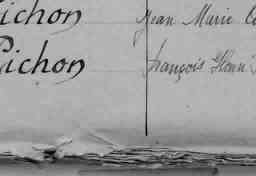 ichon Jean Marie
Pichon François Henri